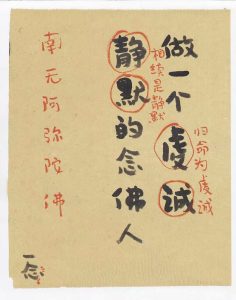 做一个虔诚
归命为虔诚
相续是静默
静默的念佛人
南无阿弥陀佛
一念